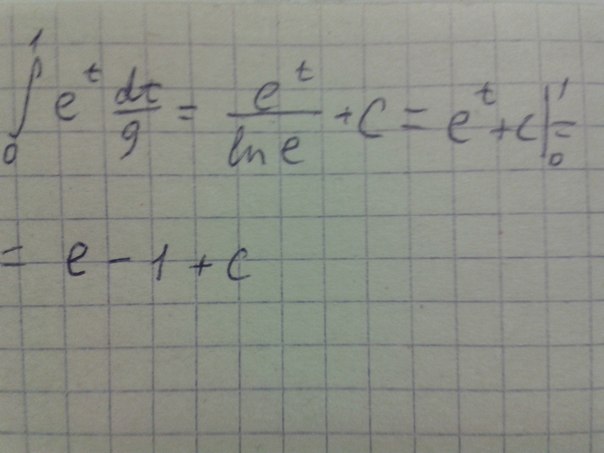 ∫₀¹ e^t dt/9 = e^t/ln e + C = e^t + c|₀¹ =
= e - 1 + c